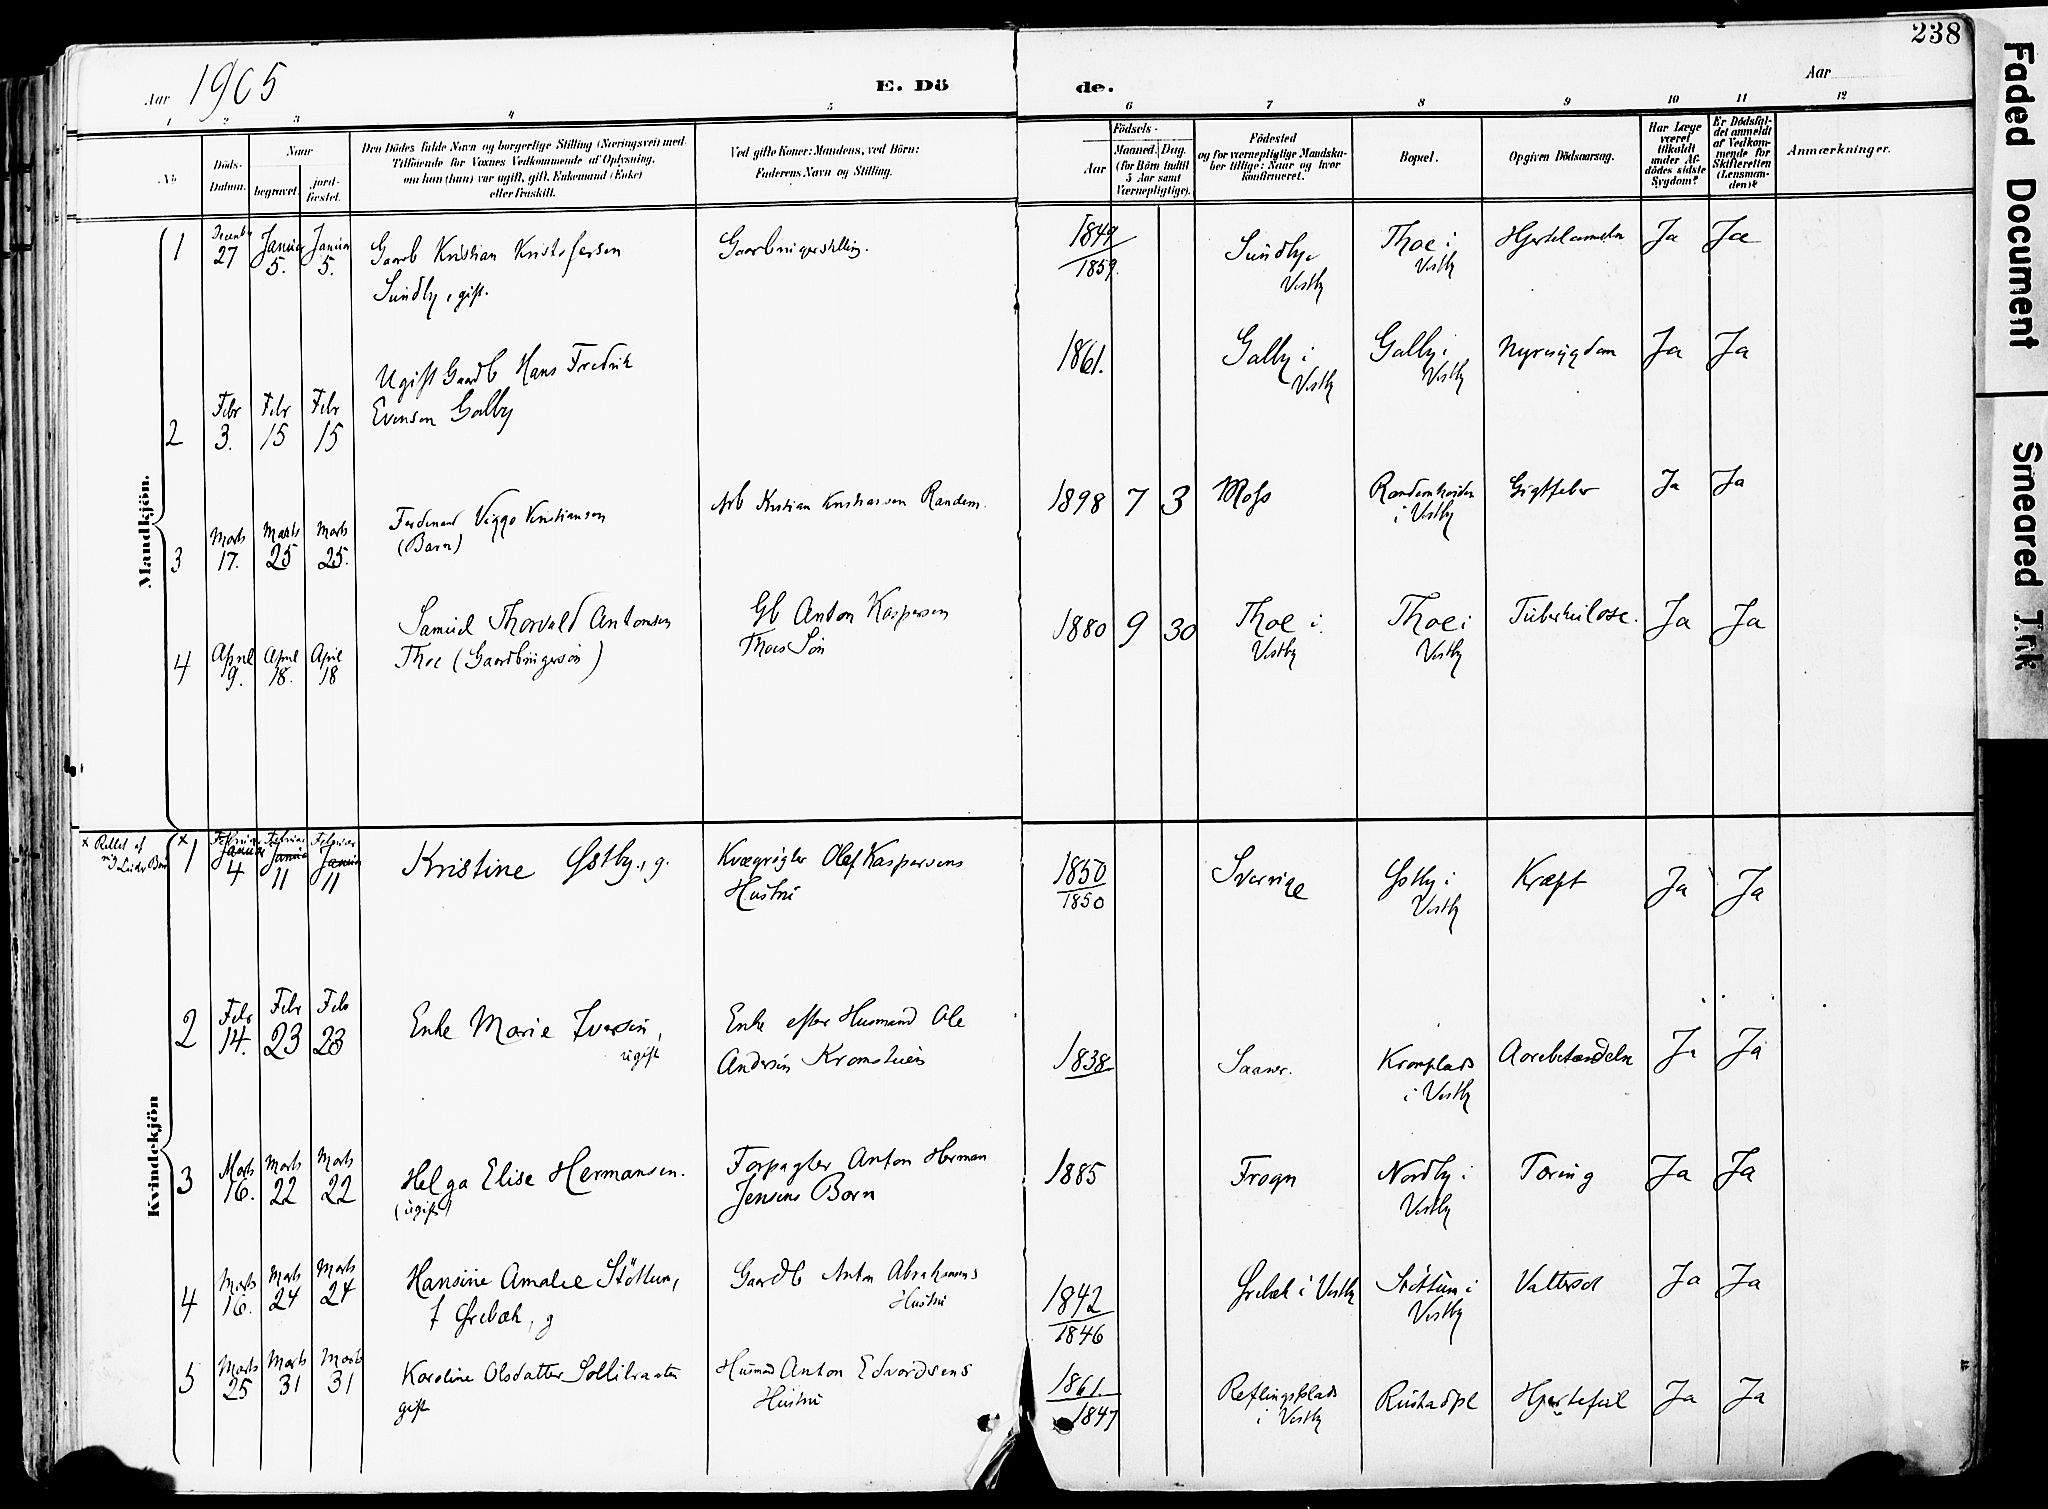 238
Faded Document
Smeared Ink
Aar 1905
E. Döde.
Aar
1 2 3 4 5 6 7 8 9 10 11 12
No.
Döds-Datum.
Naar
begravet.
jordfæstet.
Den Dödes fulde Navn og borgerlige Stilling (Næringsvei) med
Tilföiende for Voxnes Vedkommende af Oplysning,
om han (hun) var ugift, gift, Enkemand (Enke)
eller fraskilt.
Ved gifte Koner: Mandens, ved Börn:
Faderens Navn og Stilling.
Födsels-
Aar
Maaned. Dag.
(for Börn indtil
5 Aar samt
Værnepligtige).
Födested
og for værnepligtige Mandska-
ber tillige: Naar og hvor
konfirmeret.
Bopæl.
Opgiven Dödsaarsag.
Har Læge
været
tilkaldt
under Af-
dödes sidste
Sygdom?
Er Dödsfal-
det anmeldt
af Vedkom-
mende for
Skifteretten
(Lensman-
den)?
Anmærkninger.
Mandkjön.
1 December 27 Januar 5. Januar 5. Gaarb Kristian Kristofersen
Sundby, gift.
Gaarbrugerstilling.
1849
1859.
Sundby i
Vestby
Thoe i
Vestby
Ja Ja
2 Febr 3. Febr 15 Febr 15
Ugift Gaardb Hans Fredrik
Evensen Galby
1861.
Galby i
Vestby
Galby i
Vestby
Nyresygdom
Ja Ja
3 Marts 17. Marts 25 Marts 25.
Ferdinand Viggo Kristiansen
(Barn)
Arb Kristian Kristiansen Randem.
1898 7 3 Moss
i Vestby
Gigtfeber
Ja Ja
4 April 9. April 18. April 18
Samuel Thorvald Antonsen
Thoe (Gaardbrugersøn)
Gb Anton Kaspersen
Thoes Søn
1880 9 30
Thoe i
Vestby
Thoe i
Vestby
Tuberkulose.
Ja Ja
Kvindekjön
x Rettet af
x 1 Februar Januar 4 Februar Januar 11 Februar Januar 11
Kristine Østby, g.
Kvægrøgter Olef Kaspersens
Hustru
1850
1850
Sverrige
Østby i
Vestby
Kræft
Ja Ja
2 Febr 14. Febr 23 Feb 23
Enke Marie Iversen,
ugift
Enke efter Husmand Ole
Andersen
1838
Saaner.
Kronplads
i Vestby
Aarebetændelse
Ja Ja
3 Marts 16. Marts 22 Marts 22
Helga Elise Hermansen.
(ugift)
Forpagter Anton Herman
Jensens Barn
1885
Frogn
Nordby i
Vestby
Tæring
Ja Ja
4 Marts 16. Marts 24 Marts 24
Hansine Amalie Støttum,
f Ørebæk, g
Gaardb Anton Abrahamsens
Hustru
1842
1846
Ørebæk i Vestby
Støttum i
Vestby
Vattersot
Ja Ja
5 Marts 25 Marts 31 Marts 31
Karoline Olsdatter
gift
Husmd Anton Edvardsens
Hustru
1861.
1847
i Vestby
Rustadpl
Hjertefeil
Ja Ja